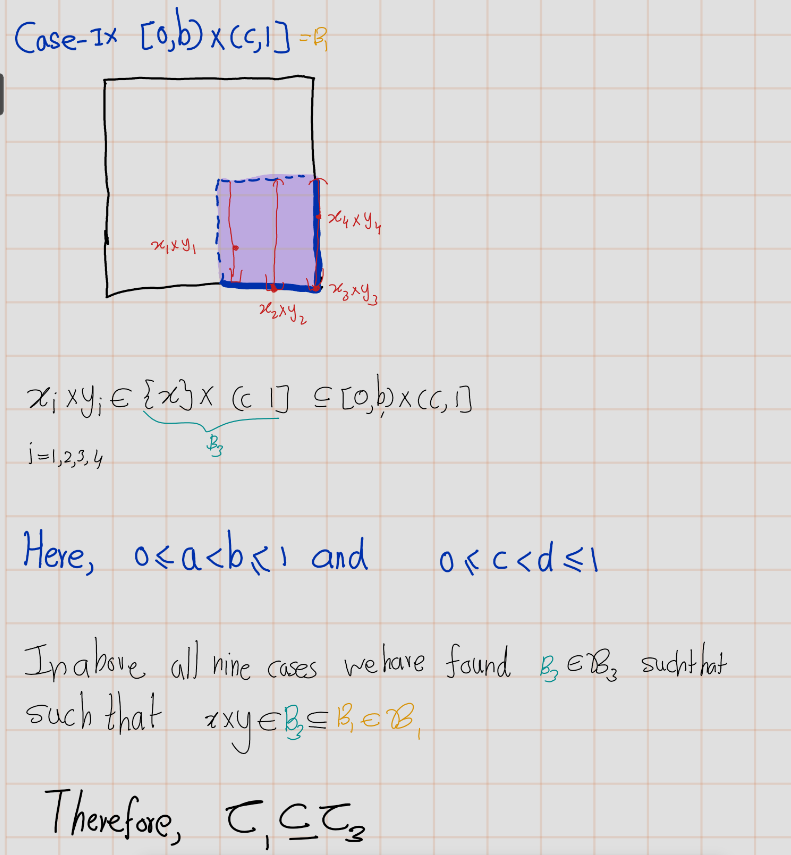 Case-IX [0,b)×(c,1] = B₁
x₄×y₄
x₁×y₁
x₃×y₃
x₂×y₂
xᵢ×yᵢ ∈ {x}× (c 1] ⊆ [0,b)×(c,1]
B₃
i=1,2,3,4
Here, 0≤a<b≤1 and 0≤c<d≤1
In above all nine cases we have found B₃ ∈ ℬ₃ such that
such that x×y ∈ B₃ ⊆ B₁ ∈ ℬ₁
Therefore, τ₁ ⊆ τ₃